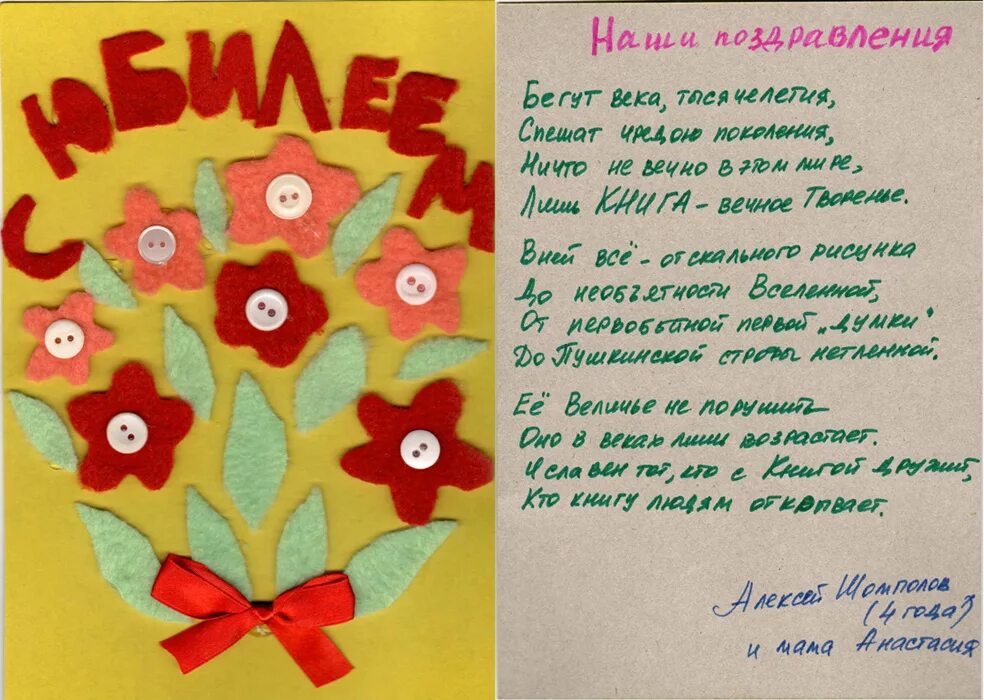 С ЮБИЛЕЕМ
Наши поздравления
Бегут века, тысячелетия,
Спешат чредою поколения,
Ничто не вечно в этом мире,
Лишь КНИГА - вечное Творенье.
В ней всё - от скального рисунка
До необъятности Вселенной,
От первобытной первой "думки"
До Пушкинской строфы нетленной.
Её Величье не порушить
Оно в веках лишь возрастает.
И славен тот, кто с Книгой дружит,
Кто книгу людям открывает.
Алексей Шомполов
(4 года)
и мама Анастасия